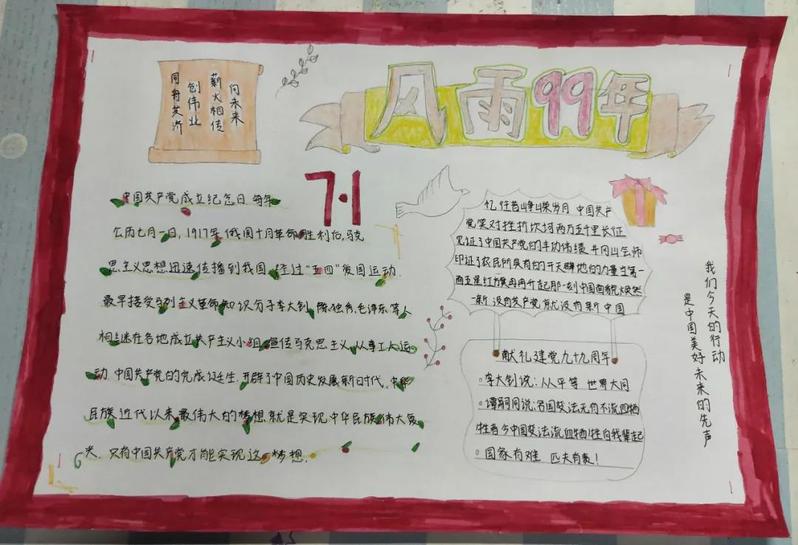 问未来
薪火相传
创伟业
同舟共济
风雨99年
7·1
中国共产党成立纪念日 每年
公历七月一日,1917年俄国十月革命胜利后,马克
思主义思想迅速传播到我国,经过“五四”爱国运动
最早接受马列主义革命知识分子李大钊,陈独秀,毛泽东等人
相继在各地成立共产主义小组,宣传马克思主义,从事工人运
动,中国共产党的完成以诞生,开辟了中国历史发展新时代,中华
民族近代以来最伟大的梦想就是实现中华民族伟大复
兴,只有中国共产党才能实现这一梦想.
忆往昔峥嵘岁月 中国共产
党笑对挫折坎坷两万五千里长征
见证了中国共产党的丰功伟绩井冈山会师
印证了农民所具有的开天辟地的力量当第一
面五星红旗冉冉升起那一刻中国面貌焕然
一新 没有共产党就没有新中国
献礼建党九十九周年
李大钊说:人平等 世界大同
谭嗣同说:各国变法无有不流血牺
牲者今中国变法流血牺牲自我辈起
国家有难 匹夫有责!
我们今天的行动
是中国美好未来的先声